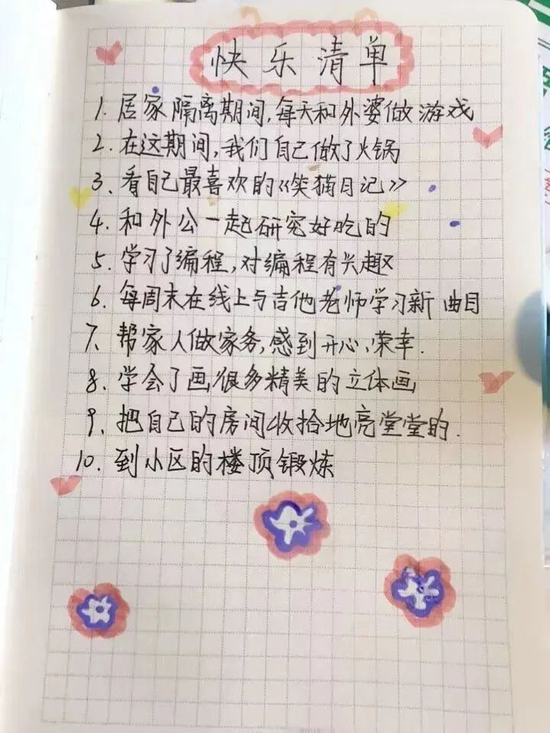 快乐清单
1. 居家隔离期间,每天和外婆做游戏
2. 在这期间,我们自己做了火锅
3. 看自己最喜欢的《笑猫日记》
4. 和外公一起研究好吃的
5. 学习了编程,对编程有兴趣
6. 每周末在线上与吉他老师学习新曲目
7. 帮家人做家务,感到开心,荣幸.
8. 学会了画很多精美的立体画
9. 把自己的房间收拾地亮堂堂的.
10. 到小区的楼顶锻炼